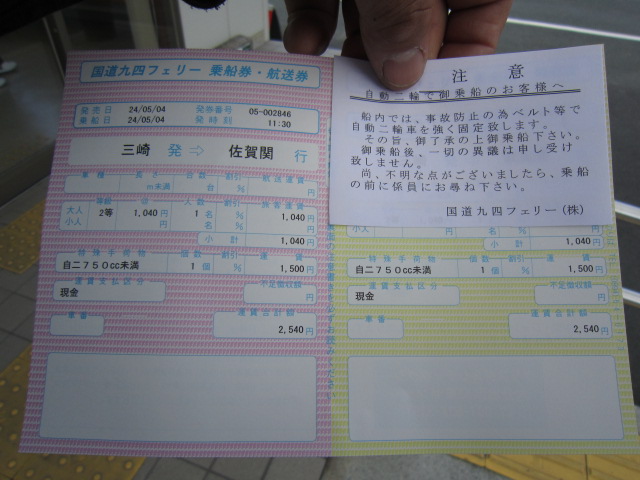 国道九四フェリー 乗船券・航送券
発売日 24/05/04 発券番号 05-002846
乗船日 24/05/04 発時刻 11:30
三崎 発⇨ 佐賀関 行
車種 長さ 台数 割引 航送運賃
m未満 台 % 円
等級 @ 人数 割引 旅客運賃
大人 2等 1,040円 1名 % 1,040円
小人 円 名 % 円
小計 1,040円
特殊手荷物 個数 割引 運賃
自二750cc未満 1個 % 1,500円
運賃支払区分 不足徴収額
現金 円
車番 運賃合計額
2,540円
注意
自動二輪で御乗船のお客様へ
船内では、事故防止の為ベルト等で
自動二輪車を強く固定致します。
その旨、御了承の上御乗船下さい。
御乗船後、一切の異議は申し受け
致しません。
尚、不明な点がございましたら、乗船
の前に係員にお尋ね下さい。
国道九四フェリー(株)
小人 円 名 % 円
小計 1,040円
特殊手荷物 個数 割引 運賃
自二750cc未満 1個 % 1,500円
運賃支払区分 不足徴収額
現金 円
車番 運賃合計額
2,540円